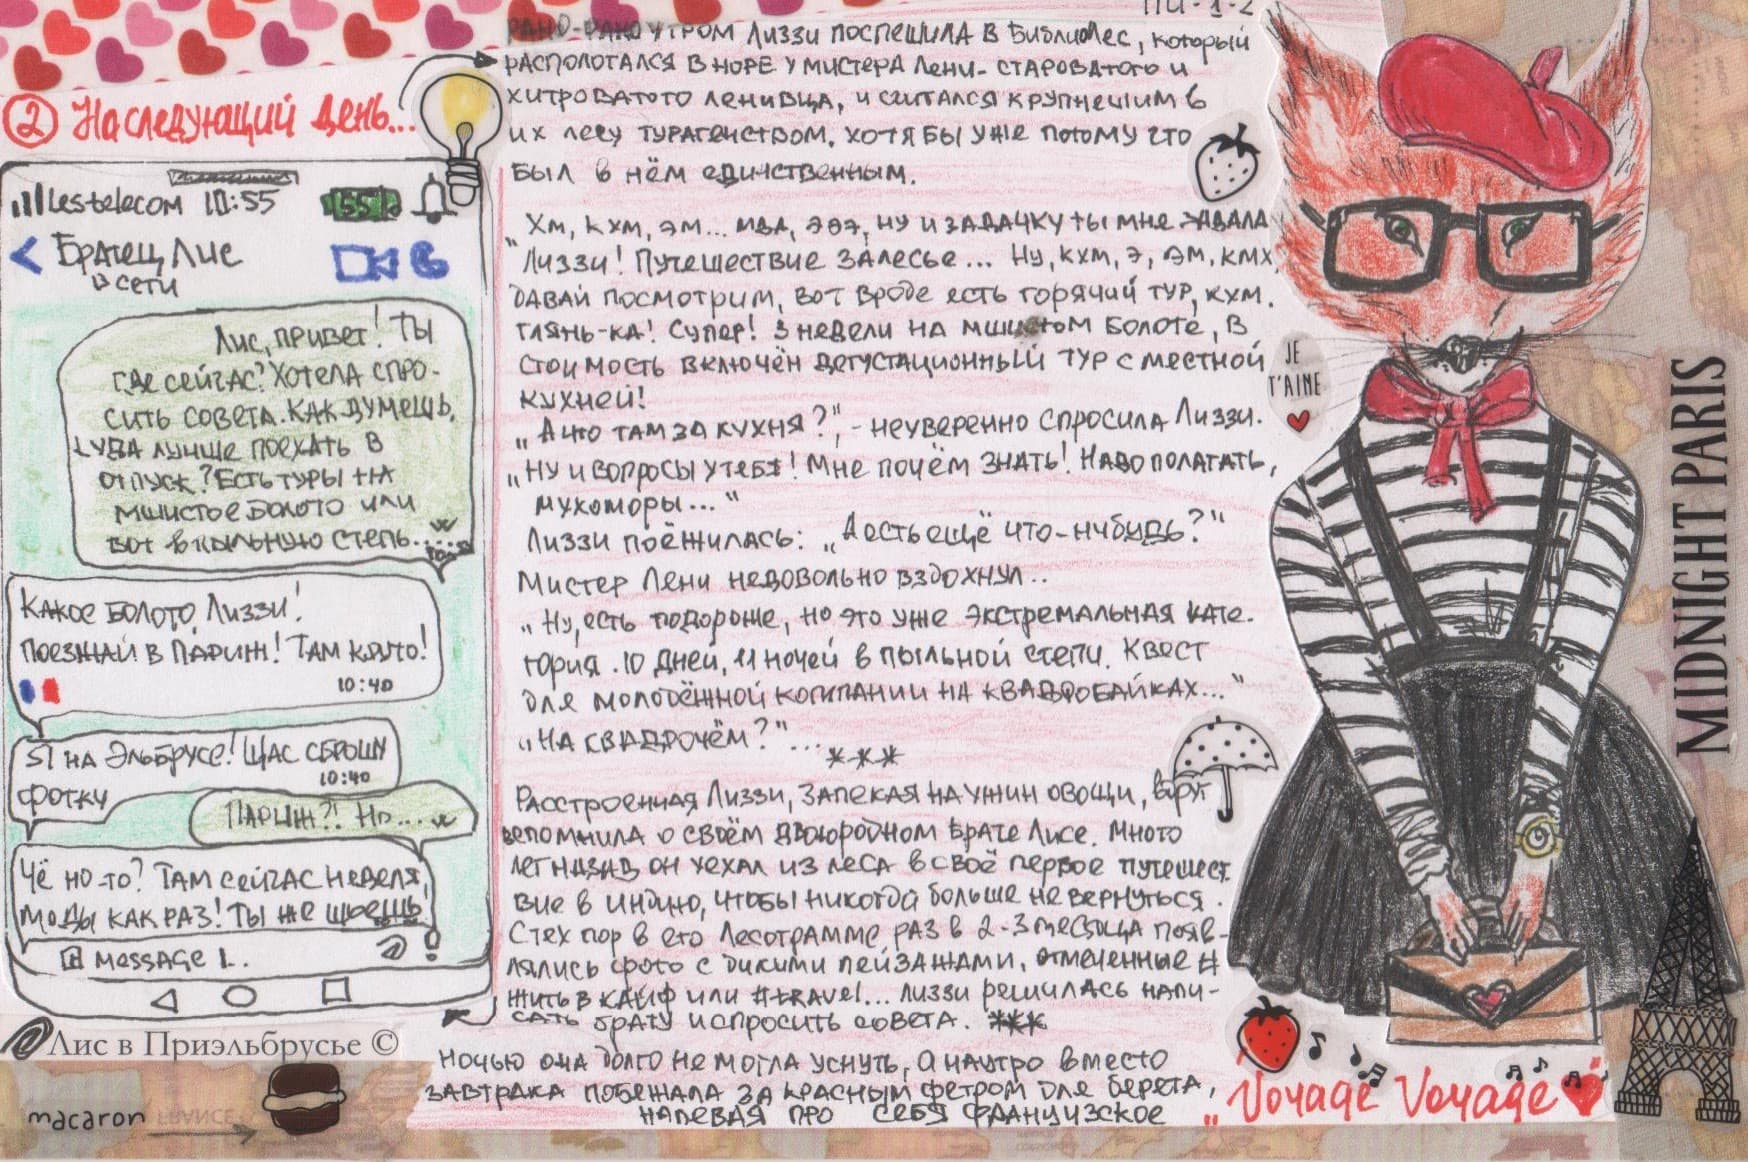 ПП-1-2
② На следующий день...
Lestelecom 10:55 55
< Братец Лис
в сети
Лис, привет! Ты
где сейчас? Хотела спро-
сить совета. Как думешь,
куда лучше поехать в
отпуск? Есть туры на
мшистое болото или
вот в пыльную степь....
Какое болото, Лиззи!
Поезжай в Париж! Там круто!
10:40
Я на Эльбрусе! Щас сброшу
10:40
фотку
Париж?! Но....
Чё но-то? Там сейчас неделя
моды как раз! Ты же шьёшь!
message
Лис в Приэльбрусье ©
macaron
FRANCE
Рано-рано утром Лиззи поспешила в БиблиоЛес, который
распологался в норе у мистера Лени- староватого и
хитроватого ленивца, и считался крупнешим в
их лесу турагенством. Хотя бы уже потому что
был в нём единственным.
„Хм, кхм, эм... мда, эээ, ну и задачку ты мне задала
Лиззи! Путешествие залесье... Ну, кхм, э, эм, кмх,
давай посмотрим, вот вроде есть горячий тур, кхм.
глянь-ка! Супер! 3 недели на мшистом болоте, в
стоимость включён дегустационный тур с местной
кухней!
„А что там за кухня?", - неуверенно спросила Лиззи.
„Ну и вопросы у тебя! Мне почём знать! Надо пологать,
мухоморы..."
Лиззи поёжилась: „А есть ещё что-нибудь?"
Мистер Лени недовольно вздохнул..
„Ну, есть подороже, но это уже экстремальная кате-
гория. 10 дней, 11 ночей в пыльной степи. Квест
для молодёжной компании на квадробайках..."
„На квадрочём?"...
***
Расстроенная Лиззи, запекая на ужин овощи, вдруг
вспомнила о своём двоюродном брате Лисе. Много
лет назад он уехал из леса в своё первое путешест
вие в Индию, чтобы никогда больше не вернуться.
С тех пор в его Лесограмме, раз в 2-3 месяца появ-
лялись фото с дикими пейзажами, отмеченные #
жить в кайф или #travel... Лиззи решилась напи-
сать брату и спросить совета. ***
Ночью она долго не могла уснуть, а наутро вместо
завтрака побежала за красным фетром для берета,
напевая про себя французское
„Voyage Voyage
JE
T'AIME
MIDNIGHT PARIS